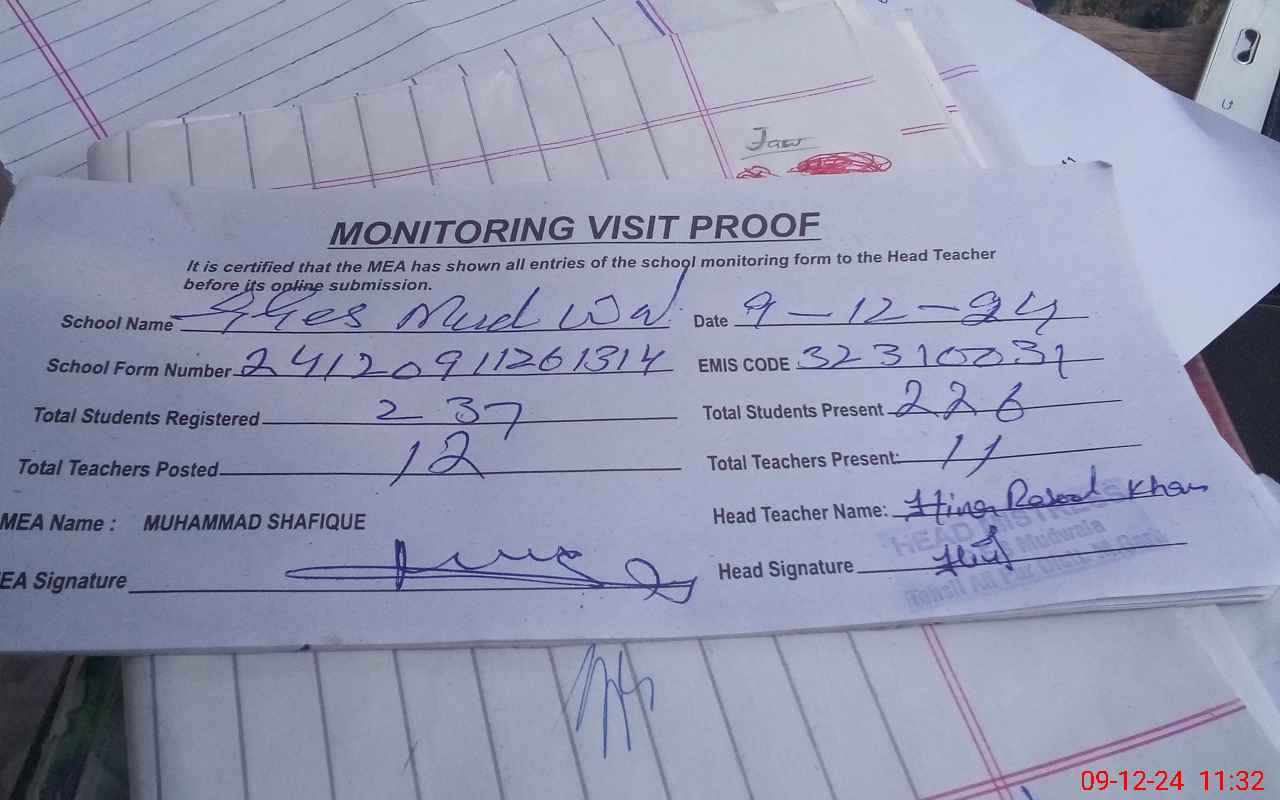 MONITORING VISIT PROOF
It is certified that the MEA has shown all entries of the school monitoring form to the Head Teacher
before its online submission.
School Name GGES Mud Wal Date 9-12-24
School Form Number 24120911261314 EMIS CODE 32310031
Total Students Registered 237 Total Students Present 226
Total Teachers Posted 12 Total Teachers Present: 11
MEA Name : MUHAMMAD SHAFIQUE Head Teacher Name: Hina Rasool Khan
EA Signature Head Signature
HEADMISTRESS
Mudwala
09-12-24 11:32